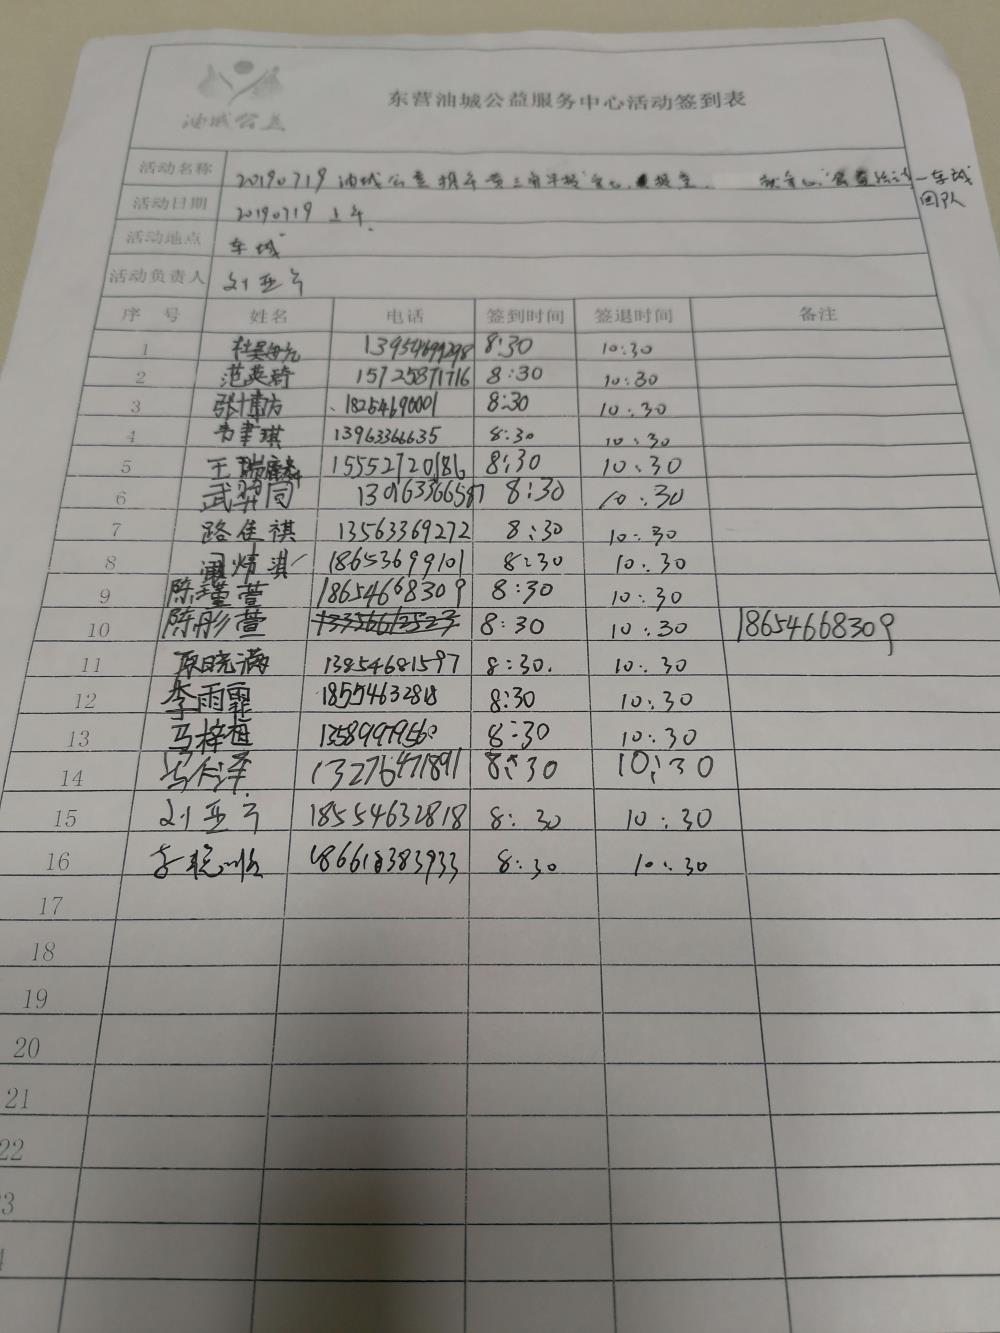 油城公益
东营油城公益服务中心活动签到表
活动名称 20190719 油城公益 一车城
团队
活动日期 20190719 上午.
活动地点 车城
活动负责人 刘亚宁
序 号 姓名 电话 签到时间 签退时间 备注
1 13954699298 8:30 10:30
2 范英琦 15725871716 8:30 10:30
3 张博方 18254690001 8:30 10:30
4 韦聿琪 13963366635 8:30 10:30
5 王瑞麟 15552720186 8:30 10:30
6 武羿同 8:30 10:30
7 路佳祺 13563369272 8:30 10:30
8 18653699101 8:30 10:30
9 陈瑾萱 18654668309 8:30 10:30
10 陈彤萱 13356612523 8:30 10:30 18654668309
11 晓满 13854681597 8:30. 10:30
12 李雨霏 18554632818 8:30 10:30
13 马梓桓 8:30 10:30
14 13276471891 8:30 10:30
15 刘亚宁 18554632818 8:30 10:30
16 李 18661383933 8:30 10:30
17
18
19
20
21
22
3